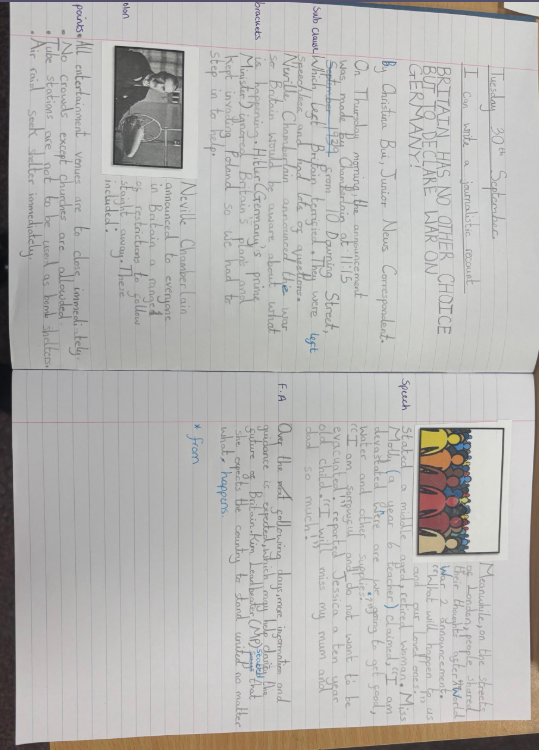 Tuesday 30th September
I can write a journalistic recount
BRITAIN HAS NO OTHER CHOICE
BUT TO DECLARE WAR ON
GERMANY!
By Christina Bui, Junior News Correspondent.
On Thursday morning, the announcement
was made by Chamberlain at 11:15
September 1939 from 10 Downing Street,
Sub clause
Which left Britain terrified. They were left
speechless and had lots of questions.
Neville Chamberlain announced the war
so Britain would be aware about what
brackets
is happening. Hitlur (Germany's prime
Minister) ignored Britain's plans and
kept invading Poland so we had to
step in to help.
Neville Chamberlain
announced to everyone
in Britain a range
of restrictions to follow
straight away. There
included:
points
• All entertainment venues are to close immediately.
• No crowds except churches are allowded.
• Tube stations are not to be used as bomb shelters.
• Air raid seek shelter immediately.
Meanwhile, on the streets
of London, people shared
their thoughts after World
War 2 announcement.
"What will happen to us
and our loved ones."
Speech
Stated a middle aged, retired woman. Miss
Molly (a year 6 teacher) claimed, "I am
devastated. Were are we going to get food,
water and other supplies."
"I am surposyical and do not want to be
evacuated." reported Jessica a ten year
old child. "I will miss my mum and
dad so much!"
F.A
Over the following days, more information and
guidance is expected, which may help clarify the
future of Britain. Kim Leadbeater (MP) that
she expects the country to stand united no matter
what happens.
* from